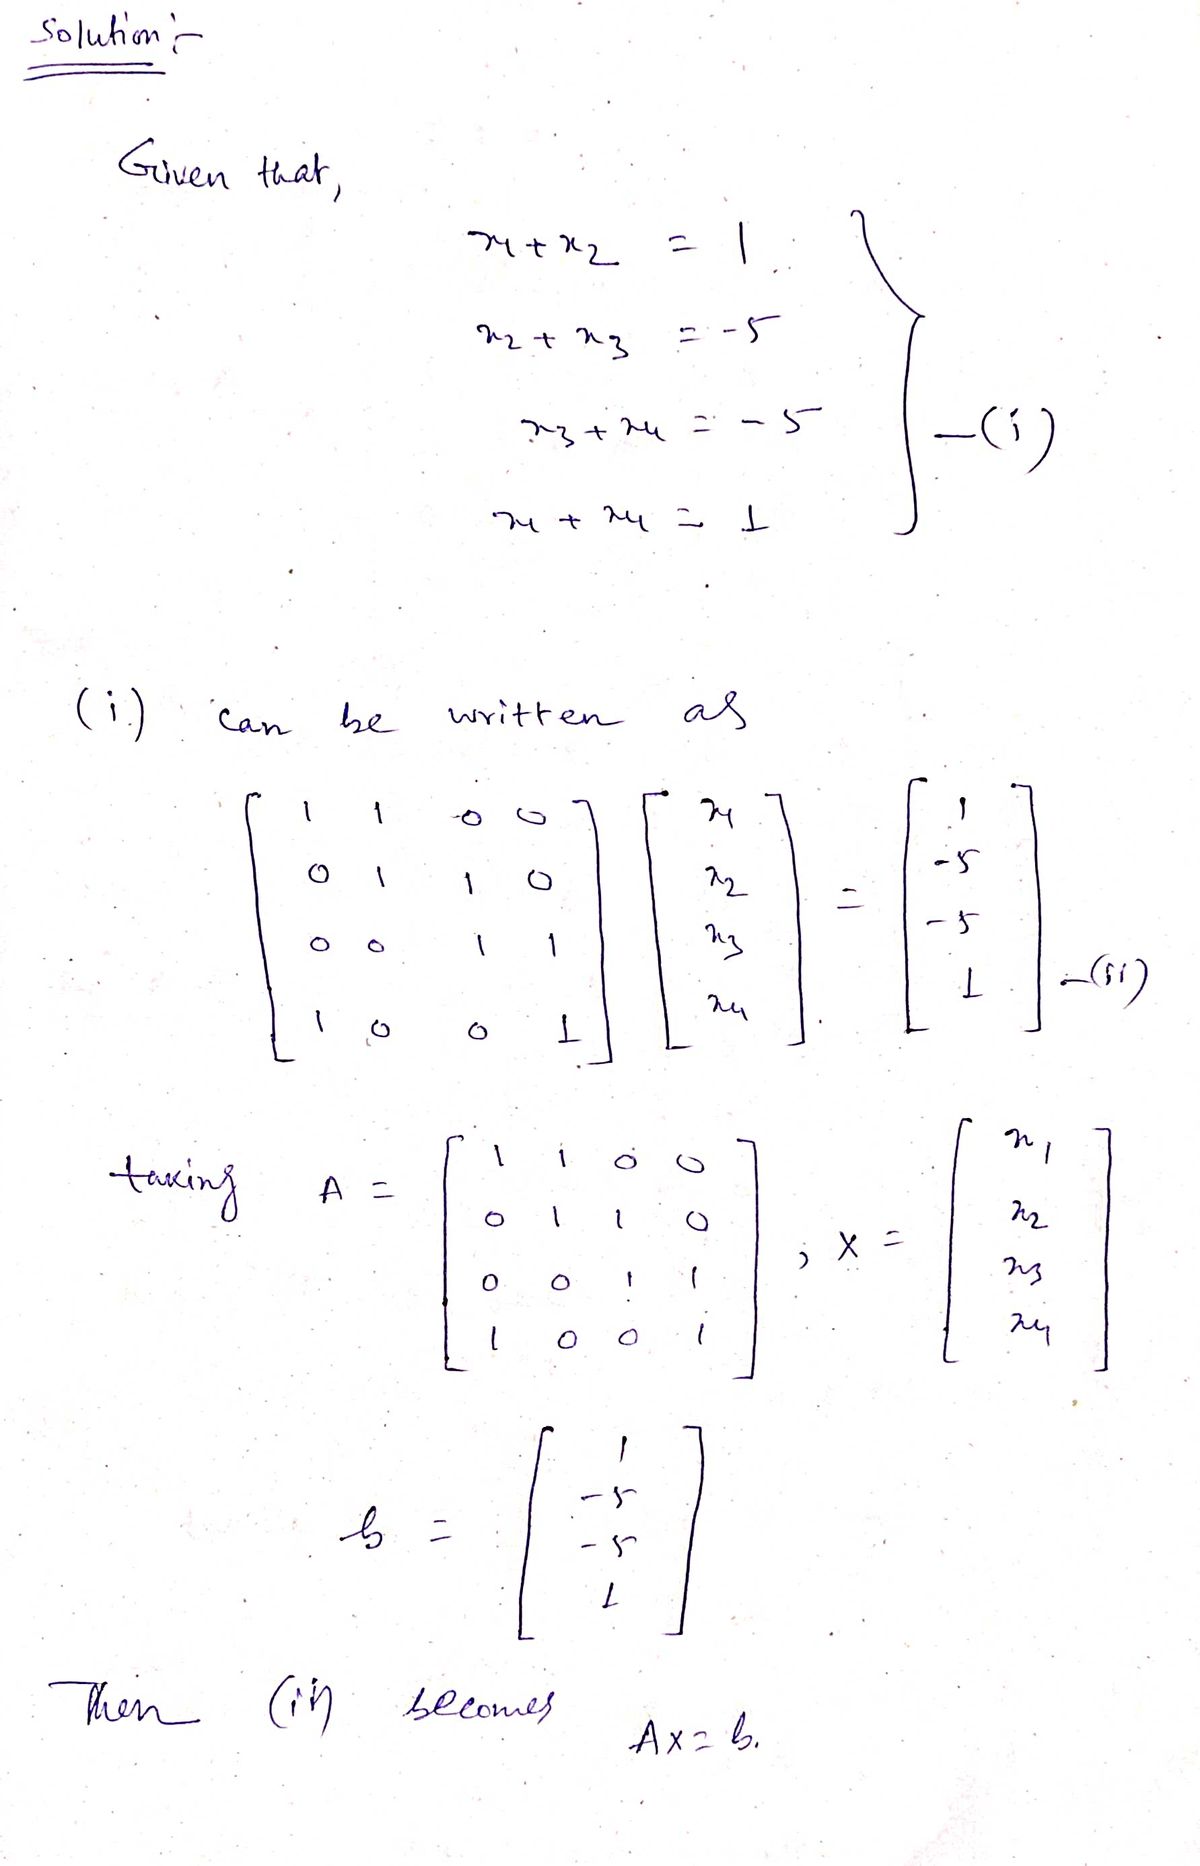 Solution:-
Given that,
x1 + x2 = 1
x2 + x3 = -5
x3 + x4 = -5
x1 + x4 = 1
-(i)
(i) can be written as
[ 1 1 0 0 ] [ x1 ] = [ 1 ]
[ 0 1 1 0 ] [ x2 ] [ -5 ]
[ 0 0 1 1 ] [ x3 ] [ -5 ]
[ 1 0 0 1 ] [ x4 ] [ 1 ] -(ii)
taking A = [ 1 1 0 0 ] ; X = [ x1 ]
[ 0 1 1 0 ] [ x2 ]
[ 0 0 1 1 ] [ x3 ]
[ 1 0 0 1 ] [ x4 ]
b = [ 1 ]
[ -5 ]
[ -5 ]
[ 1 ]
Then (ii) becomes
AX = b.